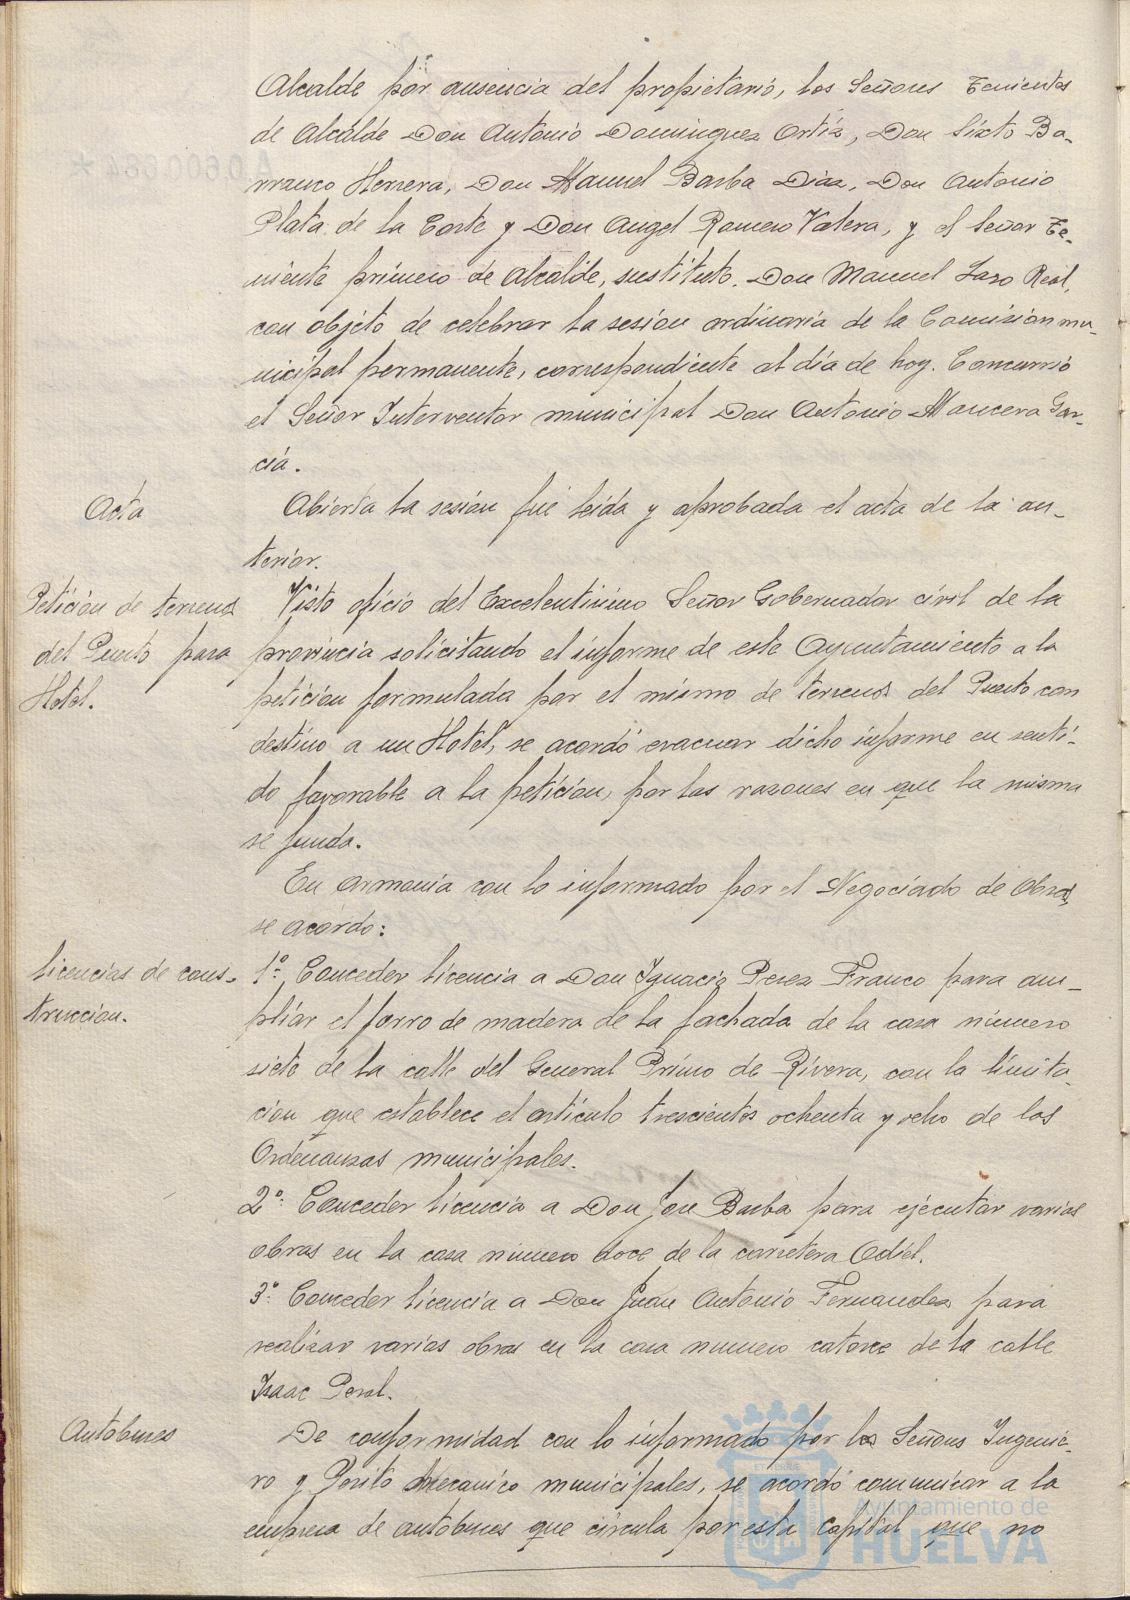 Alcalde por ausencia del propietario, los Señores Tenientes
de Alcalde Don Antonio Dominguez Ortíz, Don Sixto Ba-
rranco Herrera, Don Manuel Barba Diaz, Don Antonio
Plata de la Corte y Don Angel Romero Valera, y el Señor Te-
niente primero de Alcalde, sustituto, Don Manuel Lazo Real,
con objeto de celebrar la sesion ordinaria de la Comision mu-
nicipal permanente, correspondiente al día de hoy. Concurrió
el Señor Interventor municipal Don Antonio Mancera Gar-
cía.
Acta
Abierta la sesión fué leída y aprobada el acta de la an-
terior.
Petición de terrenos
del Puerto para
Hotel.
Visto oficio del Excelentisimo Señor Gobernador civil de la
provincia solicitando el informe de este Ayuntamiento a la
petición formulada por el mismo de terrenos del Puerto con
destino a un Hotel, se acordó evacuar dicho informe en senti-
do favorable a la petición, por las razones en que la misma
se funda.
En armonia con lo informado por el Negociado de Obras,
se acordo:
Licencias de cons-
trucción.
1º. Conceder licencia a Don Ignacio Perez Franco para am-
pliar el forro de madera de la fachada de la casa número
siete de la calle del General Primo de Rivera, con la limita-
cion que establece el artículo trescientos ochenta y ocho de las
Ordenanzas municipales.
2º. Conceder licencia a Don Jose Barba para ejecutar varias
obras en la casa número doce de la carretera Odiel.
3º. Conceder licencia a Don Juan Antonio Fernandez para
realizar varias obras en la casa numero catorce de la calle
Isaac Peral.
Autobuses
De conformidad con lo informado por los Señores Ingenie-
ro y Perito Mecanico municipales, se acordó comunicar a la
empresa de autobuses que circula por esta capital que no
Ayuntamiento de
HUELVA